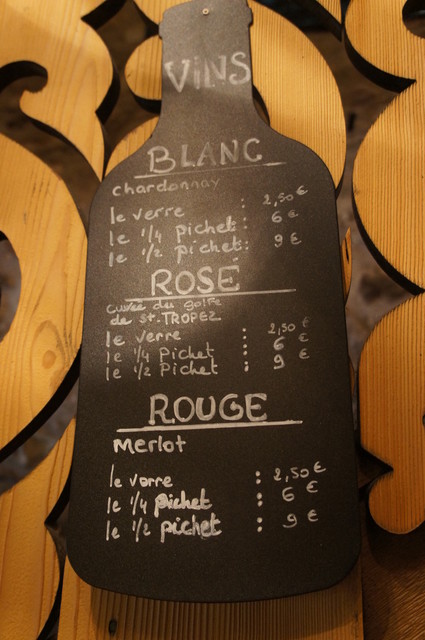 ViNS
BLANC
chardonnay
le verre : 2,50 €
le 1/4 pichet : 6 €
le 1/2 pichet : 9 €
ROSÉ
cuvée du golfe
de St. TROPEZ
le verre : 2,50 €
le 1/4 Pichet : 6 €
le 1/2 Pichet : 9 €
ROUGE
Merlot
le verre : 2,50 €
le 1/4 pichet : 6 €
le 1/2 pichet : 9 €